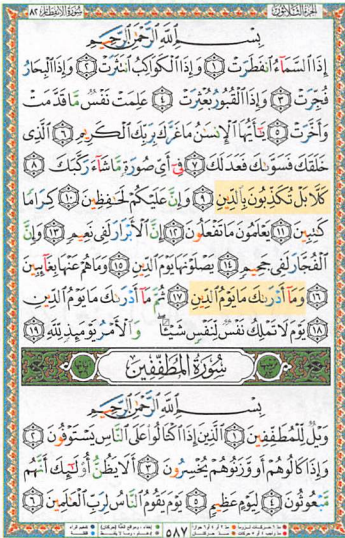 سورة الانفطار ٨٢
الجزء الثلاثون
بِسْمِ ٱللَّهِ ٱلرَّحْمَٰنِ ٱلرَّحِيمِ
إِذَا ٱلسَّمَآءُ ٱنفَطَرَتْ ١ وَإِذَا ٱلْكَوَاكِبُ ٱنتَثَرَتْ ٢ وَإِذَا ٱلْبِحَارُ
فُجِّرَتْ ٣ وَإِذَا ٱلْقُبُورُ بُعْثِرَتْ ٤ عَلِمَتْ نَفْسٌ مَّا قَدَّمَتْ
وَأَخَّرَتْ ٥ يَٰٓأَيُّهَا ٱلْإِنسَٰنُ مَا غَرَّكَ بِرَبِّكَ ٱلْكَرِيمِ ٦ ٱلَّذِى
خَلَقَكَ فَسَوَّىٰكَ فَعَدَلَكَ ٧ فِىٓ أَىِّ صُورَةٍ مَّا شَآءَ رَكَّبَكَ ٨
كَلَّا بَلْ تُكَذِّبُونَ بِٱلدِّينِ ٩ وَإِنَّ عَلَيْكُمْ لَحَٰفِظِينَ ١٠ كِرَامًا
كَٰتِبِينَ ١١ يَعْلَمُونَ مَا تَفْعَلُونَ ١٢ إِنَّ ٱلْأَبْرَارَ لَفِى نَعِيمٍ ١٣ وَإِنَّ
ٱلْفُجَّارَ لَفِى جَحِيمٍ ١٤ يَصْلَوْنَهَا يَوْمَ ٱلدِّينِ ١٥ وَمَا هُمْ عَنْهَا بِغَآئِبِينَ
١٦ وَمَآ أَدْرَىٰكَ مَا يَوْمُ ٱلدِّينِ ١٧ ثُمَّ مَآ أَدْرَىٰكَ مَا يَوْمُ ٱلدِّينِ
١٨ يَوْمَ لَا تَمْلِكُ نَفْسٌ لِّنَفْسٍ شَيْـًٔا وَٱلْأَمْرُ يَوْمَئِذٍ لِّلَّهِ ١٩
سُورَةُ الْمُطَفِّفِينَ
بِسْمِ ٱللَّهِ ٱلرَّحْمَٰنِ ٱلرَّحِيمِ
وَيْلٌ لِّلْمُطَفِّفِينَ ١ ٱلَّذِينَ إِذَا ٱكْتَالُوا۟ عَلَى ٱلنَّاسِ يَسْتَوْفُونَ ٢
وَإِذَا كَالُوهُمْ أَو وَّزَنُوهُمْ يُخْسِرُونَ ٣ أَلَا يَظُنُّ أُو۟لَٰٓئِكَ أَنَّهُم
مَّبْعُوثُونَ ٤ لِيَوْمٍ عَظِيمٍ ٥ يَوْمَ يَقُومُ ٱلنَّاسُ لِرَبِّ ٱلْعَٰلَمِينَ ٦
٥٨٧